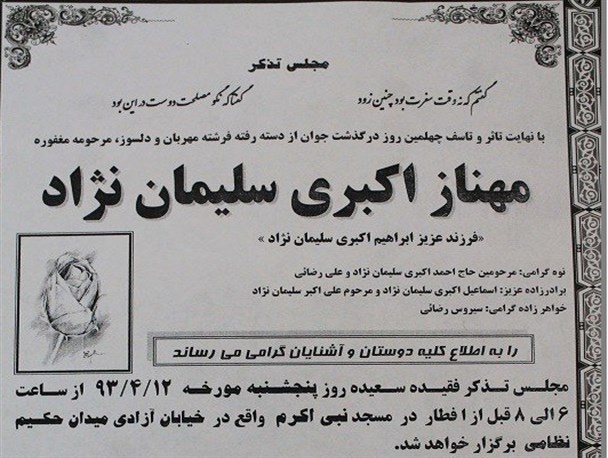 مجلس تذکر
گفتم که نه وقت سفرت بود چنین زود
گفتا که نگو مصلحت دوست در این بود
با نهایت تاثر و تاسف چهلمین روز درگذشت جوان از دسته رفته فرشته مهربان و دلسوز، مرحومه مغفوره
مهناز اکبری سلیمان نژاد
«فرزند عزیز ابراهیم اکبری سلیمان نژاد »
نوه گرامی: مرحومین حاج احمد اکبری سلیمان نژاد و علی رضائی
برادرزاده عزیز: اسماعیل اکبری سلیمان نژاد و مرحوم علی اکبر سلیمان نژاد
خواهر زاده گرامی: سیروس رضائی
را به اطلاع کلیه دوستان و آشنایان گرامی می رساند
مجلس تذکر فقیده سعیده روز پنجشنبه مورخه ۹۳/۴/۱۲ از ساعت
۶ الی ۸ قبل از افطار در مسجد نبی اکرم واقع در خیابان آزادی میدان حکیم
نظامی برگزار خواهد شد.